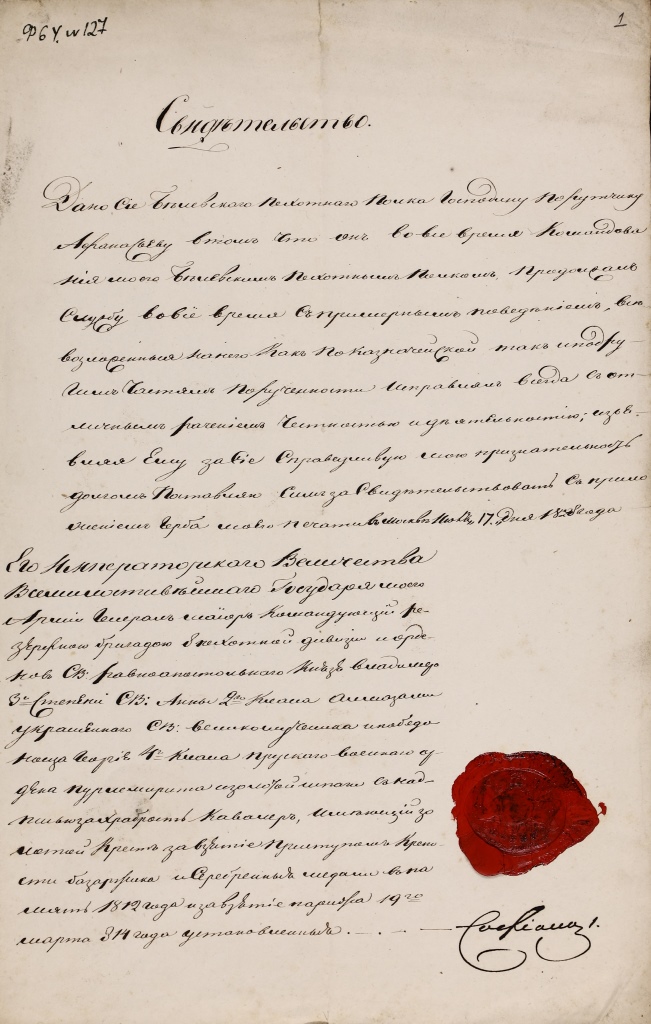 Ф 64. № 127
1
Свидѣтельство.
Дано сіе Бѣлевского пехотнаго полка Господину порутчику
Афанасьеву втомъ что онъ вовсе время Командова
нія моего Бѣлевскимъ пехотнымъ полкомъ, продолжалъ
службу вовсе время съ примернымъ поведѣніемъ, все
возложенныя нанего какъ по казначейской такъ и подру
гимъ частямъ порученности исправлялъ всегда съ от
личнымъ раченіемъ честностью и дѣятельностію; изъе-
вляя Ему за сіе справедливую мою признательность
долгомъ поставляю симъ засвидѣтельствовать съ прило
женіемъ герба моего печати въ Москвѣ 17. дня года
Его Императорскаго Величества
Всемилостивѣйшаго Государя моего
Арміи Генералъ маіоръ Командующій ре-
зервною бригадою пехотной дивизіи и орде-
новъ Св: равноапостольнаго Князя владимера
3й Степени Св: Анны 2го Класа Алмазами
украшеннаго Св: великомученика и победо
носца Георгія 4го Класа прускаго военнаго ор
дена пурлемерита и золотой шпаги съ над
писью захрабрость Кавалеръ, имеющій зо
лотой Крестъ завзятіе приступомъ Крепо
сти базаржика и серебренныя медали въ па
мять 1812 года и завзятіе парижа 19го
марта 814 года установленныя.